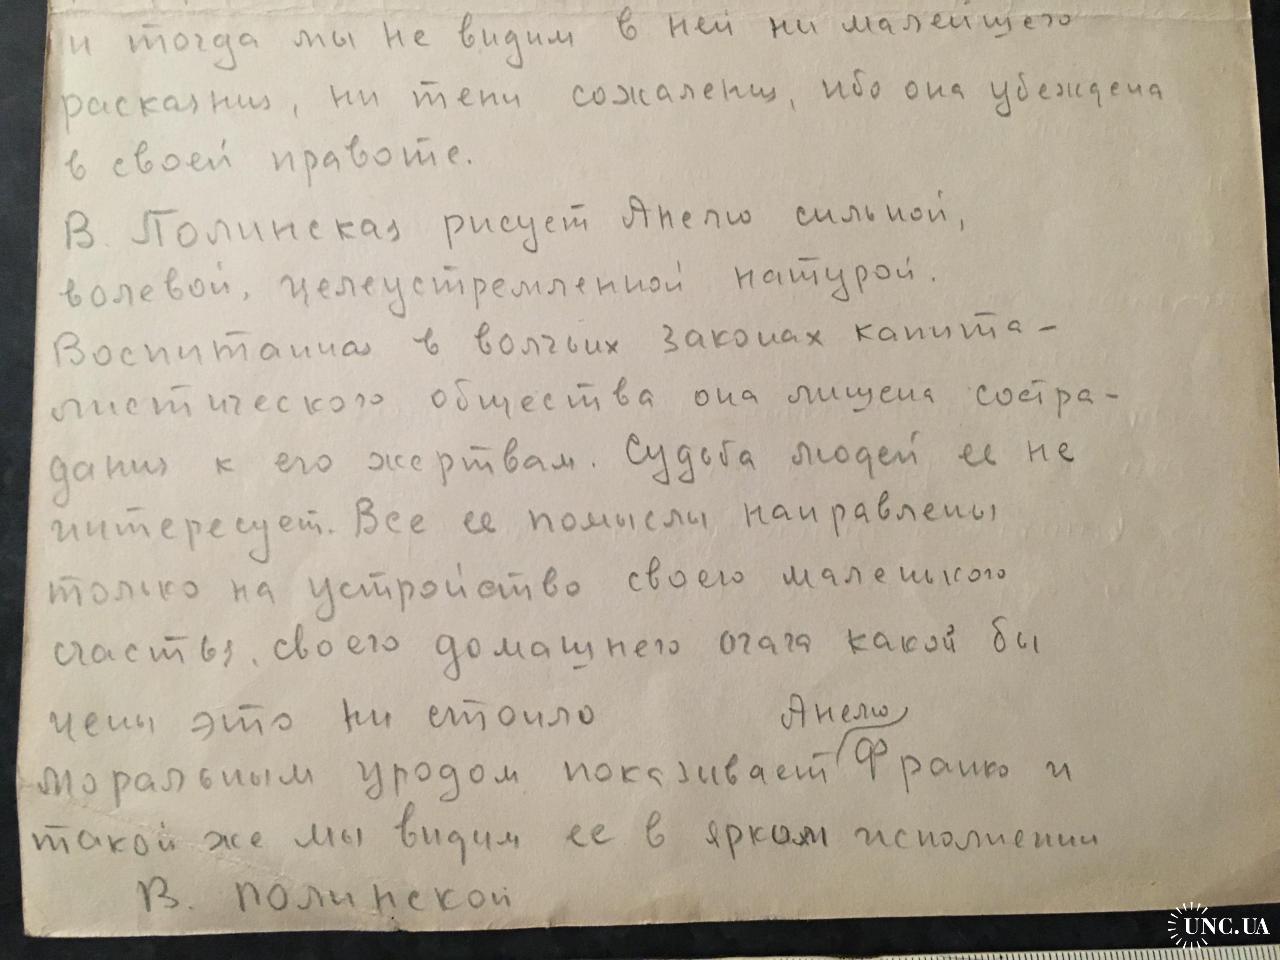 и тогда мы не видим в ней ни малейшего
расказния, ни тени сожаления, ибо она убеждена
в своей правоте.
В. Полинская рисует Анелю сильной,
волевой, целеустремленной натурой.
Воспитанная в волчьих законах капита-
листического общества она лишена состра-
дания к его жертвам. Судьба людей ее не
интересует. Все ее помыслы направлены
только на устройство своего маленького
счастья, своего домашнего очага какой бы
цены это ни стоило
Анелю
моральным уродом показывает Франко и
такой же мы видим ее в ярком исполнении
В. Полинской
UNC.UA